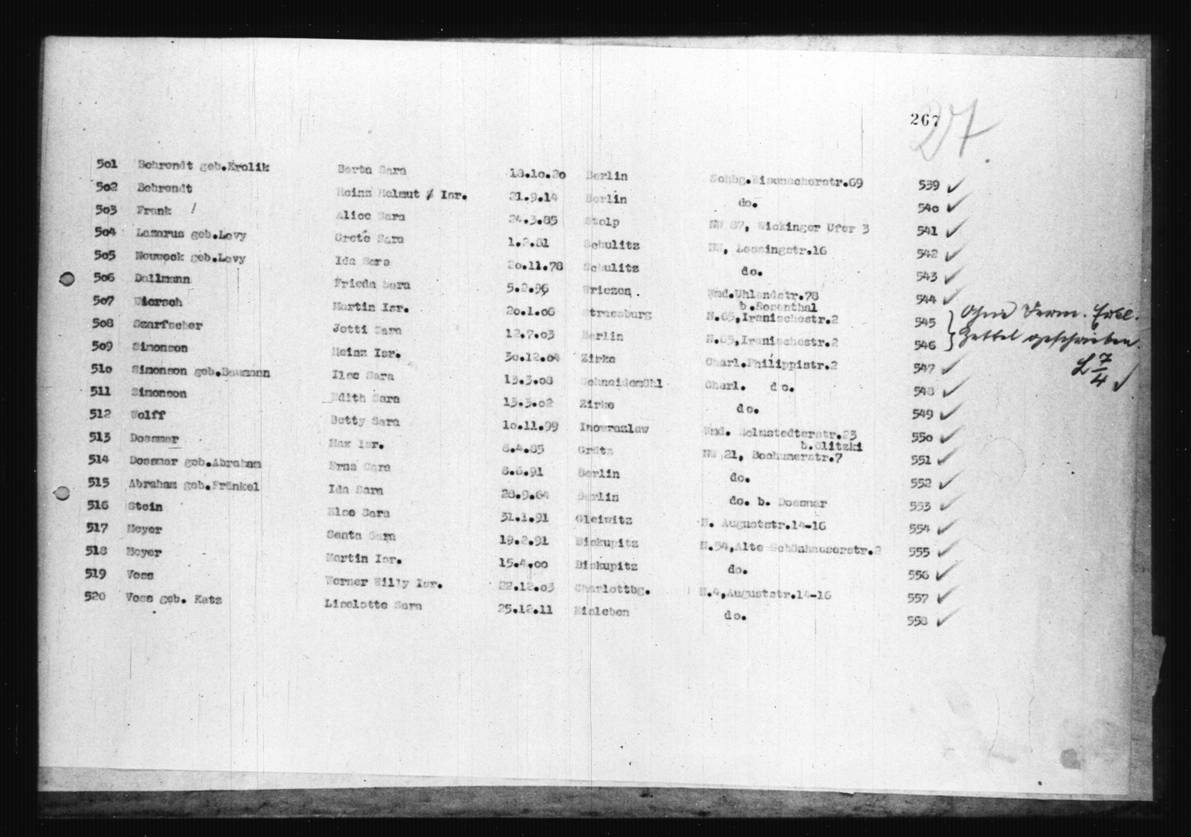 267
27.
501 Behrendt geb.Krolik Berta Sara 18.10.20 Berlin Schbg.Eisenacherstr.69 539 ✓
502 Behrendt Heinz Helmut Isr. 21.9.14 Berlin do. 540 ✓
503 Frank Alice Sara 24.3.85 Stolp NW 87, Wickinger Ufer 3 541 ✓
504 Lazarus geb.Levy Grete Sara 1.2.81 Schulitz NW, Lessingstr.16 542 ✓
505 Neuweck geb.Levy Ida Sara 20.11.78 Schulitz do. 543 ✓
506 Dallmann Frieda Sara 5.2.96 Wriezen Wmd.Uhlandstr.78 544 ✓
b.Rosenthal
507 Wiersch Martin Isr. 20.1.06 Strassburg N.65,Iranischestr.2 545
508 Szarfscher Jetti Sara 12.7.03 Berlin N.65,Iranischestr.2 546
Ohne Verm. Erkl.
Zettel geschrieben.
7/4 ✓
509 Simonson Heinz Isr. 30.12.04 Zirke Charl.Philippistr.2 547 ✓
510 Simonson geb.Baumann Ilse Sara 13.3.08 Schneidemühl Charl. do. 548 ✓
511 Simonson Edith Sara 13.3.02 Zirke do. 549 ✓
512 Wolff Betty Sara 10.11.99 Inowrazlaw Wmd. Helmstedterstr.23 550 ✓
b.Olitzki
513 Dossmar Max Isr. 8.4.85 Grätz NW 21, Bochumerstr.7 551 ✓
514 Dossmar geb.Abraham Erna Sara 8.6.91 Berlin do. 552 ✓
515 Abraham geb.Fränkel Ida Sara 28.9.64 Berlin do. b. Dossmar 553 ✓
516 Stein Else Sara 31.1.91 Gleiwitz N. Auguststr.14-16 554 ✓
517 Meyer Santa Sara 19.2.91 Biskupitz N.54,Alte Schönhauserstr.2 555 ✓
518 Meyer Martin Isr. 15.4.00 Biskupitz do. 556 ✓
519 Voss Werner Willy Isr. 22.12.03 Charlottbg. N.4,Auguststr.14-16 557 ✓
520 Voss geb. Katz Liselotte Sara 25.12.11 Eisleben do. 558 ✓